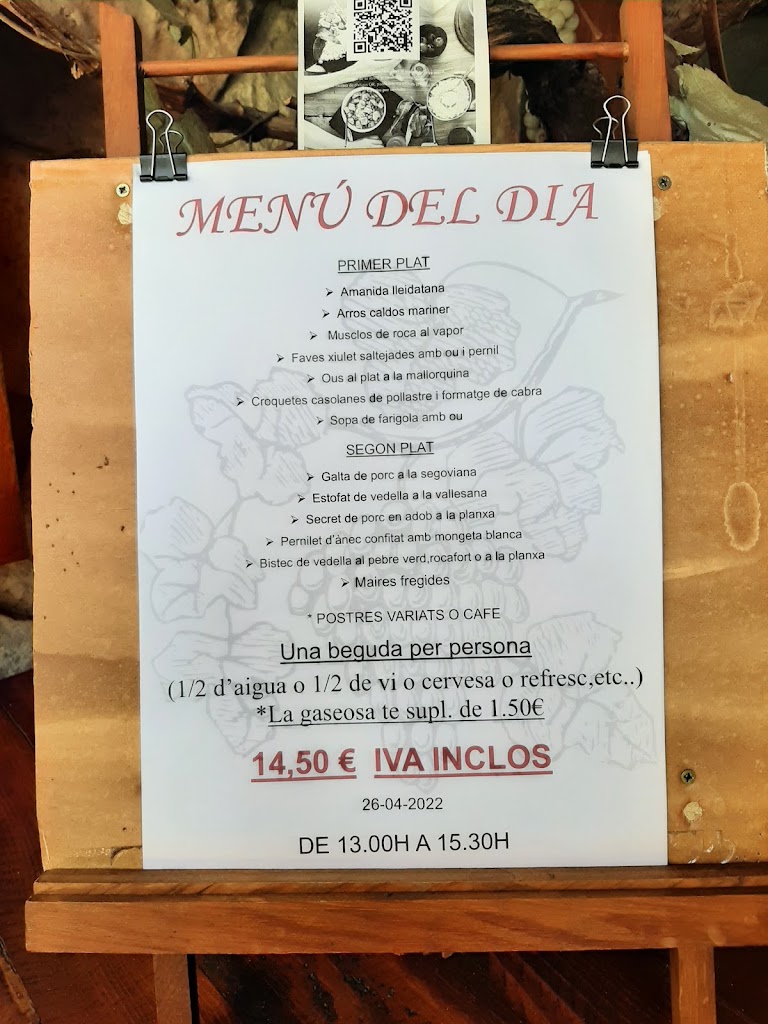 MENÚ DEL DIA
PRIMER PLAT
➢ Amanida lleidatana
➢ Arros caldos mariner
➢ Musclos de roca al vapor
➢ Faves xiulet saltejades amb ou i pernil
➢ Ous al plat a la mallorquina
➢ Croquetes casolanes de pollastre i formatge de cabra
➢ Sopa de farigola amb ou
SEGON PLAT
➢ Galta de porc a la segoviana
➢ Estofat de vedella a la vallesana
➢ Secret de porc en adob a la planxa
➢ Pernilet d'ànec confitat amb mongeta blanca
➢ Bistec de vedella al pebre verd,rocafort o a la planxa
➢ Maires fregides
* POSTRES VARIATS O CAFE
Una beguda per persona
(1/2 d'aigua o 1/2 de vi o cervesa o refresc,etc..)
*La gaseosa te supl. de 1.50€
14,50 € IVA INCLOS
26-04-2022
DE 13.00H A 15.30H